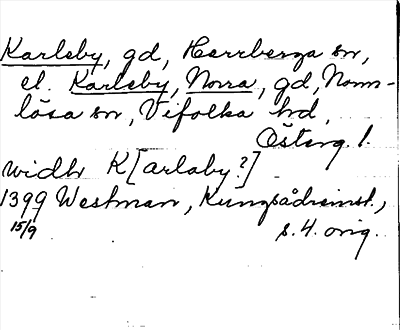 Karleby, gd, Herrberga sn,
el. Karleby, Norra, gd, Norm-
lösa sn, Vifolka hd,
Österg. l.
widh K[arlaby?]
1399 Westman, Kungsådreinst.,
15/9 s. 4. orig.